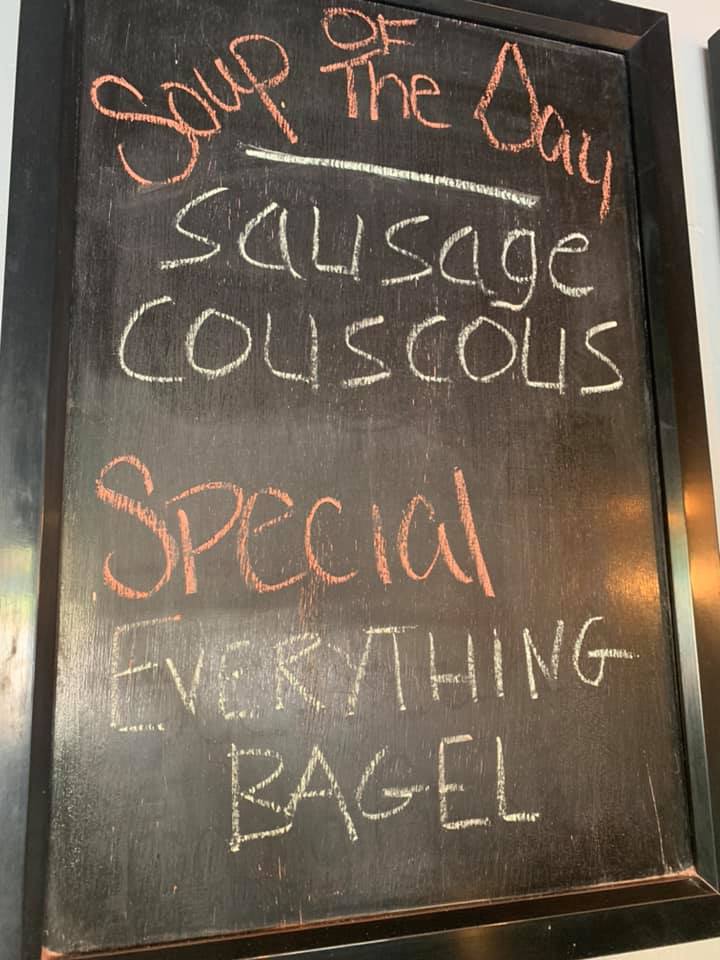 Soup OF The Day
sausage
couscous
Special
EVERYTHING
BAGEL